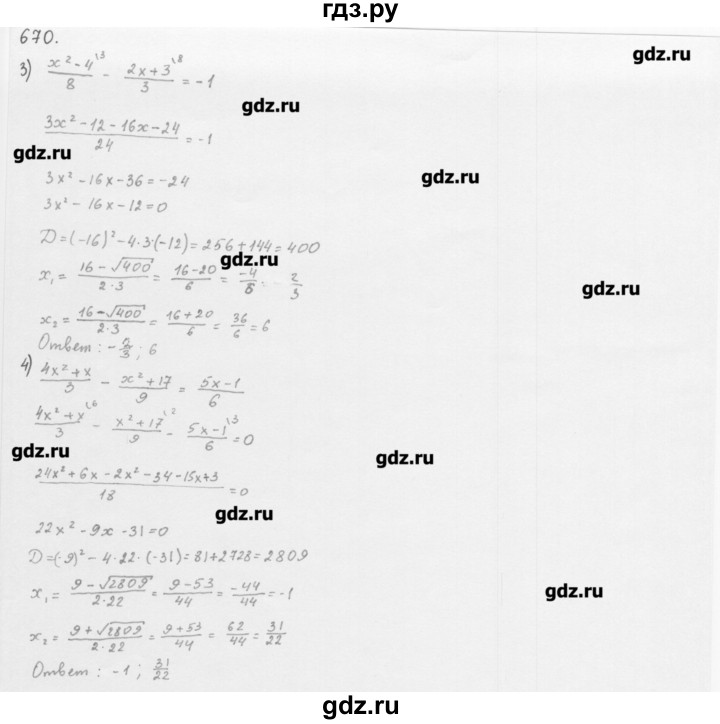 гдз.ру
670.
gdz.ru
3) (x² - 4)/8 \3 - (2x + 3)/3 \8 = -1
gdz.ru
(3x² - 12 - 16x - 24)/24 = -1
gdz.ru
3x² - 16x - 36 = -24
gdz.ru
3x² - 16x - 12 = 0
D = (-16)² - 4·3·(-12) = 256 + 144 = 400
gdz.ru
x₁ = (16 - √400)/(2·3) = (16 - 20)/6 = -4/6 = -2/3
gdz.ru
x₂ = (16 - √400)/(2·3) = (16 + 20)/6 = 36/6 = 6
Ответ: -2/3; 6
4) (4x² + x)/3 - (x² + 17)/9 = (5x - 1)/6
(4x² + x)/3 \6 - (x² + 17)/9 \2 - (5x - 1)/6 \3 = 0
gdz.ru
gdz.ru
(24x² + 6x - 2x² - 34 - 15x + 3)/18 = 0
gdz.ru
22x² - 9x - 31 = 0
D = (-9)² - 4·22·(-31) = 81 + 2728 = 2809
x₁ = (9 - √2809)/(2·22) = (9 - 53)/44 = -44/44 = -1
gdz.ru
x₂ = (9 + √2809)/(2·22) = (9 + 53)/44 = 62/44 = 31/22
Ответ: -1; 31/22
gdz.ru